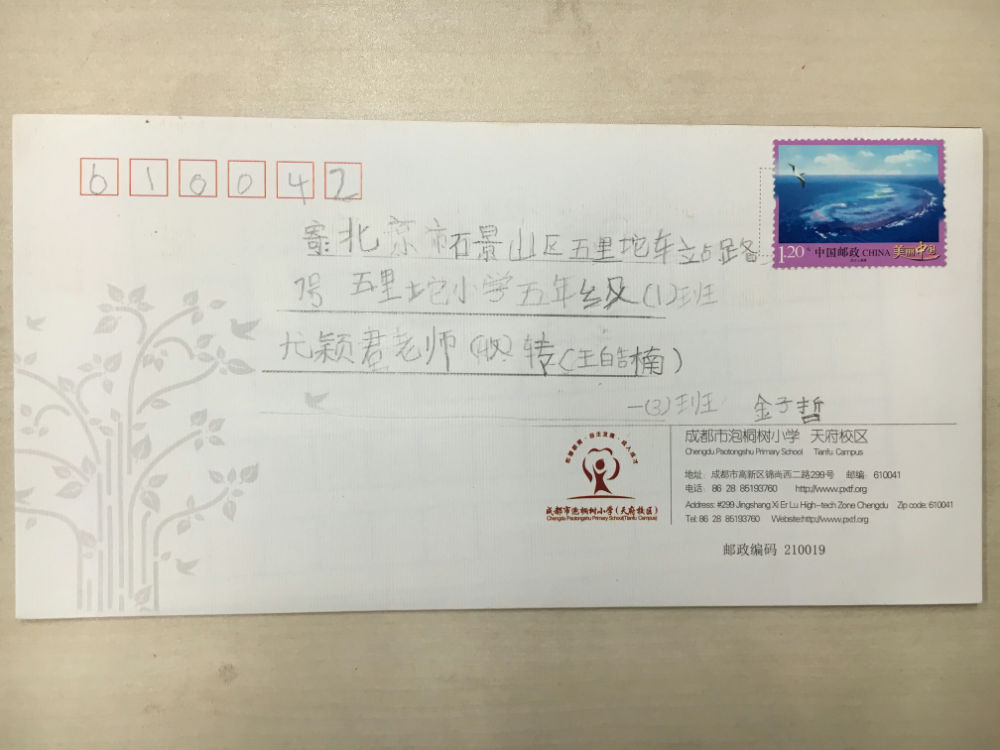 610042
寄北京市石景山区五里坨车站路
7号 五里坨小学五年级(1)班
尤颖君老师(收)转(王皓楠)
一(3)班 金子哲
1.20 中国邮政 CHINA 美丽中国
成都市泡桐树小学(天府校区)
Chengdu Paotongshu Primary School(Tianfu Campus)
成都市泡桐树小学 天府校区
Chengdu Paotongshu Primary School Tianfu Campus
地址: 成都市高新区锦尚西二路299号 邮编: 610041
电话: 86 28 85193760 http://www.pxtf.org
Address: #299 Jingshang Xi Er Lu High-tech Zone Chengdu Zip code: 610041
Tel: 86 28 85193760 Website:http://www.pxtf.org
邮政编码 210019